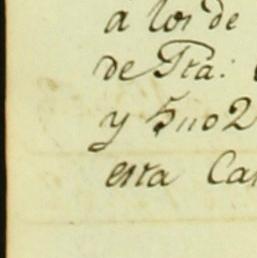 a los de
de Pta:
y 5110 2
esta Ca